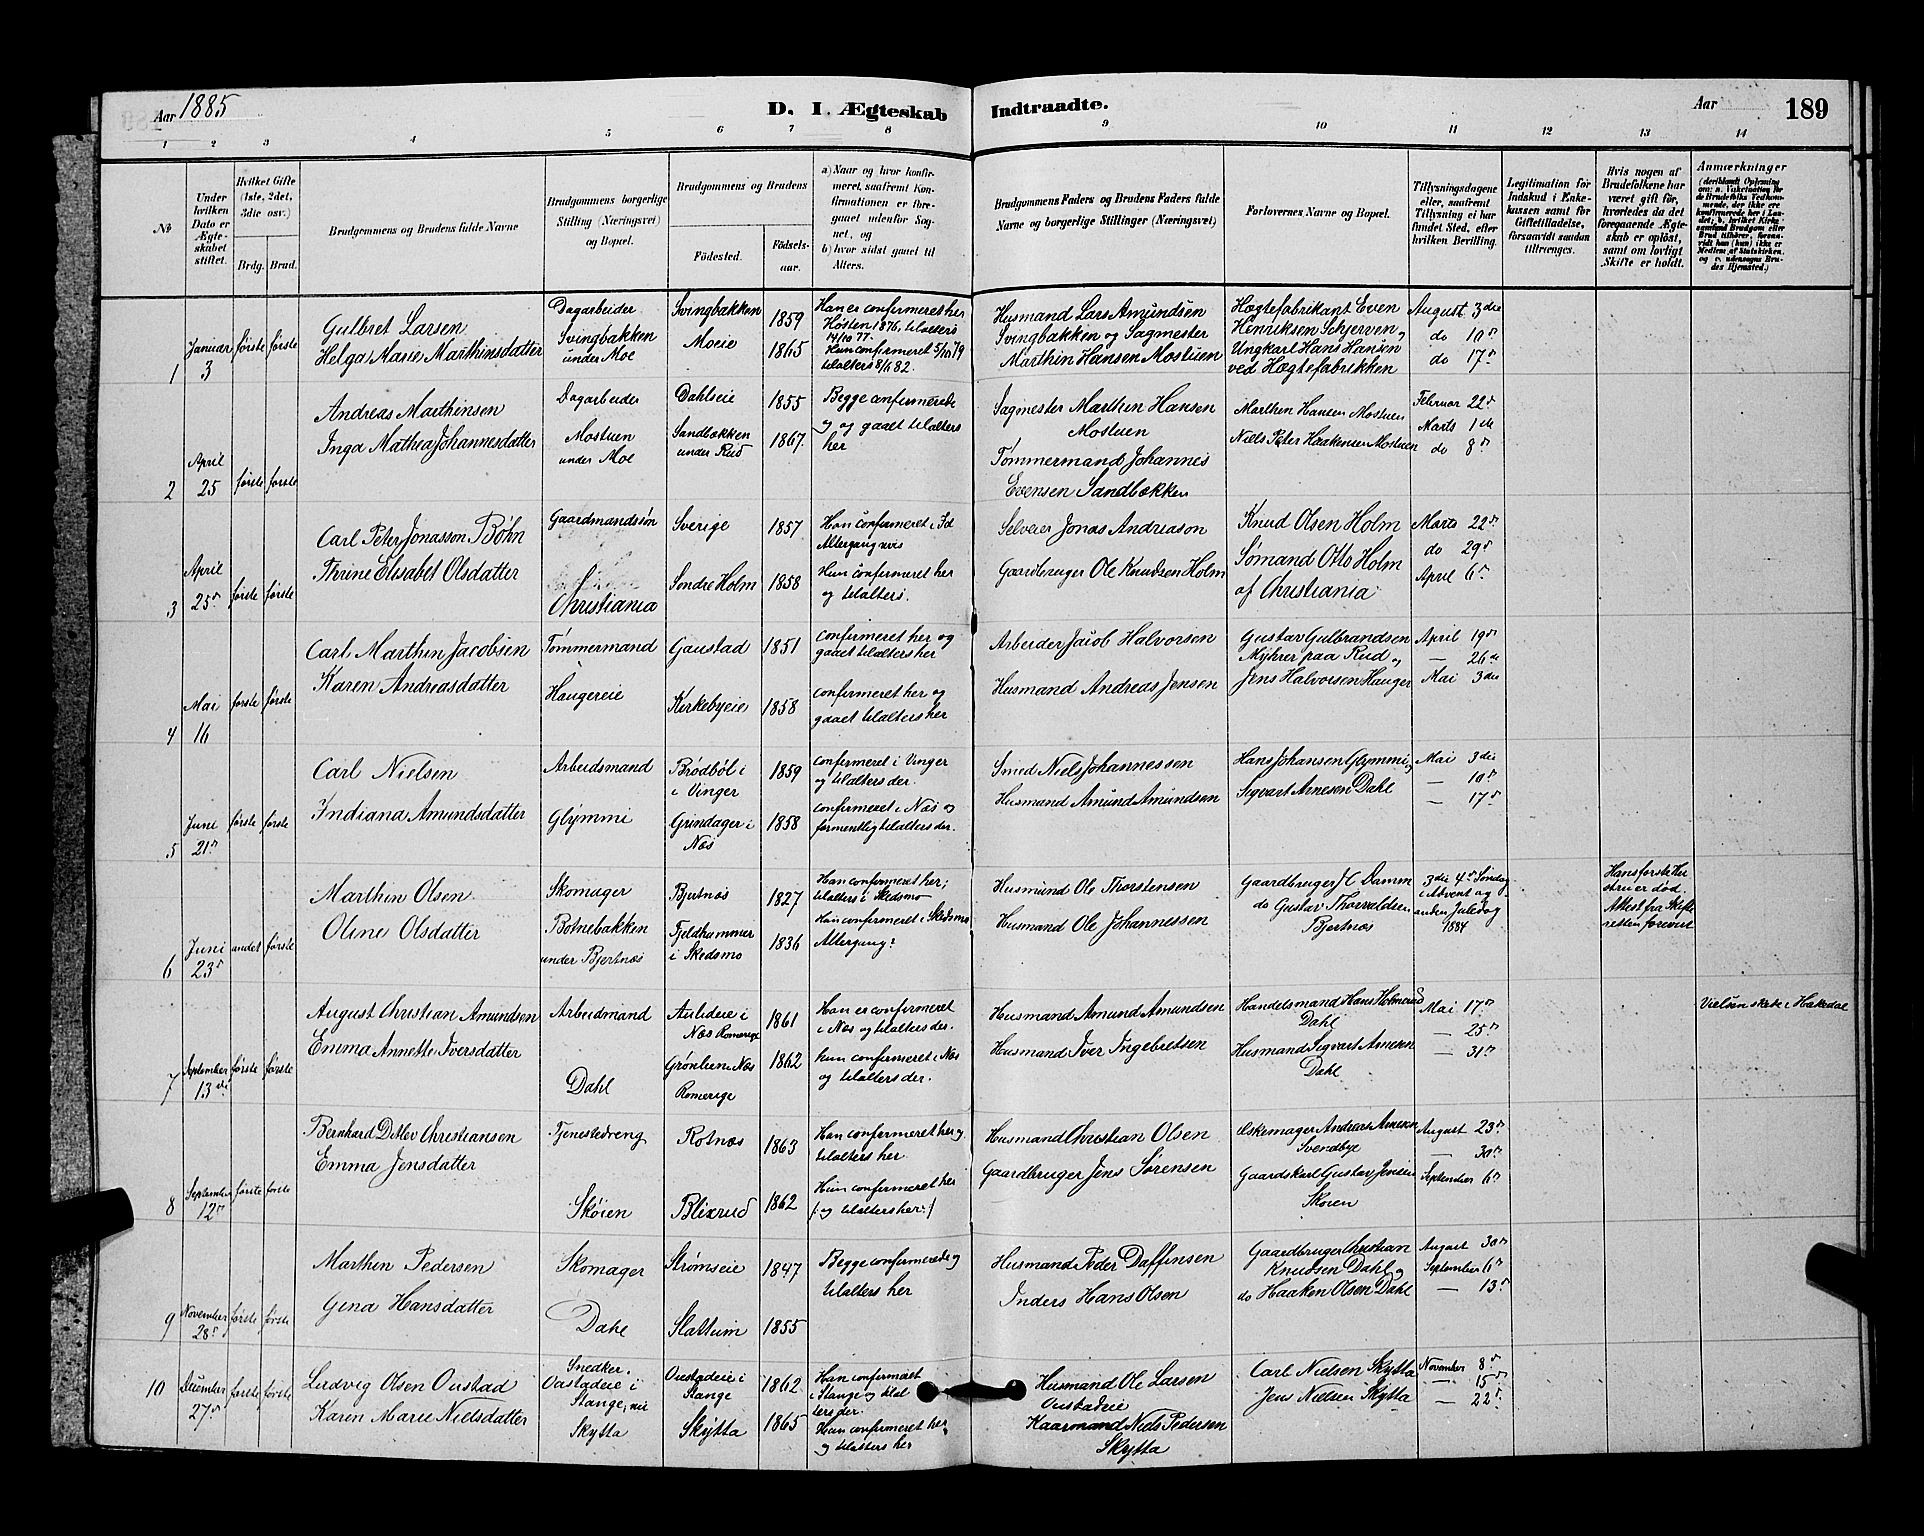 Aar 1885
D. I. Ægteskab Indtraadte.
Aar
189
1 2 3 4 5 6 7 8 9 10 11 12 13 14
No
Under hvilken Dato er Ægteskabet stiftet.
Hvilket Gifte (1ste, 2det, 3die osv.)
Brdg. Brud.
Brudgommens og Brudens fulde Navne
Brudgommens borgerlige Stilling (Næringsvei) og Bopæl.
Brudgommens og Brudens
Fødested.
Fødselsaar.
a) Naar og hvor konfirmeret, saafremt Konfirmationen er foregaaet udenfor Sognet, og
b) hvor sidst gaaet til Alters.
Brudgommens Faders og Brudens Faders fulde Navne og borgerlige Stillinger (Næringsvei)
Forlovernes Navne og Bopæl.
Tillysningsdagene eller, saafremt Tillysning ei har fundet Sted, efter hvilken Bevilling.
Legitimation for Indskud i Enkekassen samt for Giftetilladelse, forsaavidt saadan tiltrænges.
Hvis nogen af Brudefolkene har været gift før, hvorledes da det foregaaende Ægteskab er opløst, samt om lovligt Skifte er holdt.
Anmærkninger
1
Januar
3
første første
Gulbret Larsen
Helga Marie Marthinsdatter
Dagarbeider
Svingbakken
under Moe
Svingbakken
Moeie
1859
1865
Han er confirmeret her
Høsten 1876, tilalters
14/10 77.
Hun confirmeret 5/10 79
tilalters 8/6 82.
Husmand Lars Amundsen
Svingbakken og Sagmester
Marthin Hansen Mostuen
Hægtefabrikant Even
Henriksen Schjerven,
Ungkarl Hans Hansen
ved Hægtefabrikken
August 3die
do 10n
do 17n
2
April
25
første første
Andreas Marthinsen
Inga Mathea Johannesdatter
Dagarbeider
Mostuen
under Moe
Dahlseie
Sandbækken
under Rud
1855
1867.
Begge confirmerede
og gaaet tilalters
her
Sagmester Marthin Hansen
Mostuen
Tømmermand Johannes
Evensen Sandbækken
Marthin Hansen Mostuen
Niels Peter Haakensen Mostuen
Februar 22n
Marts 1ste
do 8n
3
April
25n
første første
Carl Peter Jonasson Böhn
Thrine Elisabet Olsdatter
Gaardmandssøn
Christiania
Sverige
Søndre Holm
1857
1858
Han confirmeret i
Altergang
Hun confirmeret her
og tilalters.
Selveier Jonas Andreason
Gaardbruger Ole Knudsen Holm
Knud Olsen Holm
Sømand Otto Holm
af Christiania
Marts 22n
do 29n
April 6n
4
Mai
16
første første
Carl Marthin Jacobsen
Karen Andreasdatter
Tømmermand
Haugereie
Gaustad
Kirkebyeie
1851
1858
confirmeret her og
gaaet tilalters her
confirmeret her og
gaaet tilalters her
Arbeider Jacob Halvorsen
Husmand Andreas Jensen
Gustav Gulbrandsen
Myhrer paa Rud og
Jens Halvorsen Hauger
April 19n
— 26de
Mai 3die
5
Juni
21n
første første
Carl Nielsen
Indiana Amundsdatter
Arbeidsmand
Glymmi
Brodbøl i
i Vinger
Grindager i
Næs
1859
1858
confirmeret i Vinger
og tilalters der.
confirmeret i Næs og
formentlig tilalters der.
Smed Niels Johannessen
Husmand Amund Amundsen
Hans Johansen Glymmi,
Segvart Arnesen Dahl
Mai 3die
— 10n
— 17n
6
Juni
23n
andet første
Marthin Olsen
Oline Olsdatter
Skomager
Botnebakken
under Bjertnæs
Bjertnæs
Fjeldhammer
i Skedsmo
1827
1836
Han confirmeret her;
tilalters i Skedsmo
Hun confirmeret i Skedsmo
Altergang?
Husmand Ole Thorstensen
Husmand Ole Johannessen
Gaardbruger H C Damm
do Gustav Thorvaldsen
Bjertnæs
3die 4n Søndag
i Advent og
anden Juledag
1884
Hans første Hustru
er død.
Attest fra Skifteretten
forevist
7
September
13de
første første
August Christian Amundsen
Emma Annette Iversdatter
Arbeidmand
Dahl
Aulieie i
Næs Romerige
Grønlien Næs
Romerige
1861
1862
Han er confirmeret
i Næs og tilalters der.
hun confirmeret i Næs
og tilalters der.
Husmand Amund Amundsen
Husmand Iver Ingebretsen
Handelsmand Hans Holmerud
Dahl
Husmand Segvart Arnesen
Dahl
Mai 17n
— 25n
— 31n
Vielsen skede i Hakedal
8
September
12n
første første
Bernhard Detlev Christiansen
Emma Jensdatter
Tjenestedreng
Skøien
Rotnæs
Blixrud
1863
1862
Han confirmeret her og
tilalters her
Hun confirmeret her
/: og tilalters her :/
Husmand Christian Olsen
Gaardbruger Jens Sørensen
Æskemager Andreas Arnesen
Svendbye
Gaardskarl Gustav Jensen
Skøien
August 23n
— 30n
September 6n
9
November
28n
første første
Marthin Pedersen
Gina Hansdatter
Skomager
Dahl
Strømseie
Slattum
1847
1855
Begge confirmerede og
tilalters her
Husmand Peder Daffinsen
Inders Hans Olsen
Gaardbruger Christian
Knudsen Dahl og
do Haaken Olsen Dahl
August 30n
September 6n
— 13n
10
December
27n
første første
Ludvig Olsen Oustad
Karen Marie Nielsdatter
Snedker.
Oustadeie i
Stange, nu
Skytta
Oustadeie i
Stange
Skytta
1862
1865
Han confirmeret
i Stange og tilalters
der.
Hun confirmeret her
og tilalters her
Husmand Ole Larsen
Oustadeie
Kaarmand Niels Pedersen
Skytta
Carl Nielsen Skytta
Jens Nielsen Skytta
November 8n
— 15n
— 22n